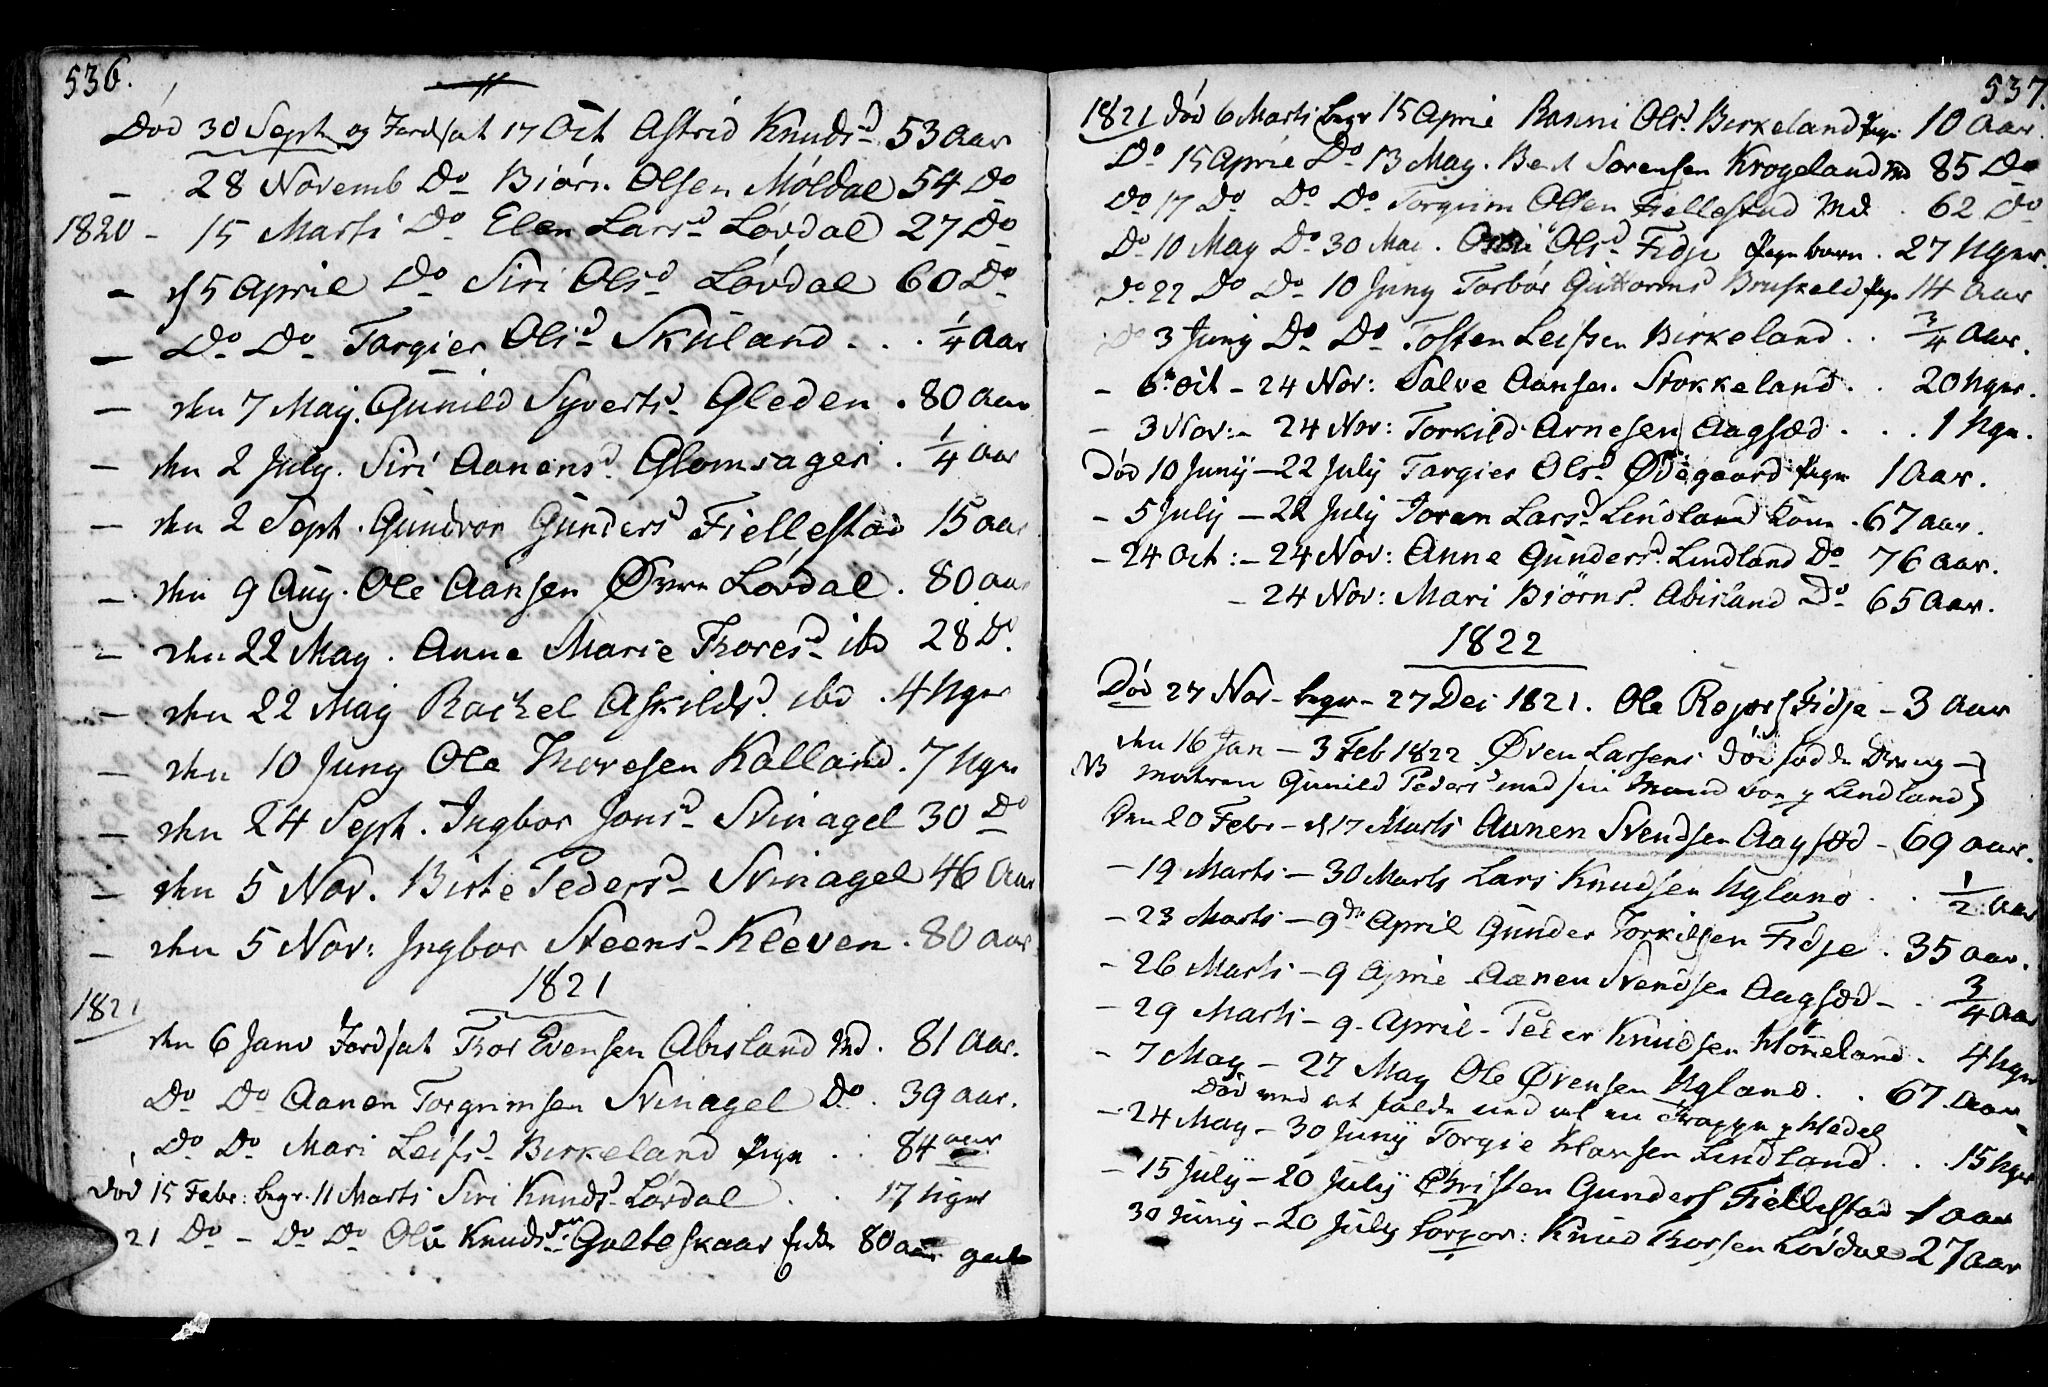 536.
Død 30 Sept og Jordsat 17 Oct Astrid Knudsd 53 Aar
– 28 Novemb Do Biørn Olsen Møldal 54 Do
1820 – 15 Marti Do Elen Larsd Løvdal 27 Do
– d 5 April Do Siri Olsd Løvdal 60 Do
– Do Do Targier Olsd Skuland . . . 1/4 Aar
– den 7 May. Gunild Syvertsd Gleden . 80 Aar
– den 2 July. Siri Aanensd Glomsager . 1/4 Aar
– den 2 Sept . Gundvor Gundersd Fiellestad 15 aar
– den 9 Aug. Ole Aansen Øvre Løvdal . 80 aar
– den 22 May . Anne Marie Thoresd ibd 28 Do
– den 22 May Rachel Askildsd ibd . 4 Uger
– den 10 Juny Ole Thoresen Kalland . 7 Uger
– den 24 Sept . Ingbor Jonsd Svinagel 30 Do
– den 5 Nov. Birte Pedersd Svinagel 46 Aar
– den 5 Nov: Ingbor Steensd Kleven . 80 Aar
1821
1821 den 6 Janv Jordsat Thor Evensen Abisland Md . 81 Aar.
Do Do Aanen Torgrimsen Svinagel Do . 39 Aar.
Do Do Mari Leifsd Birkeland Pige . . 84 aar
Død 15 Febr: begr. 11 Marti Siri Knudsd Løvdal . . 17 Uger
21 Do – Do Do Knudsd Galteskaar 80 aar
537.
1821 Død 6 Marti begr 15 April Ranni Olsd Birkeland Pige 10 Aar.
Do 15 April Do 13 May. Bent Sørensen Krogeland Md 85 Do
Do 17 Do Do Do Torgrim Olsen Fiellestad Md . 62 Do
Do 10 May Do 30 Mai . Olsd Fidje Pige barn . 27 Uger.
Do 22 Do Do 10 Juny Torbør Guttormsd Bruskeld Pige 14 Aar
Do 3 Juny Do Do Tosten Leifsen Birkeland . . 3/4 Aar.
– 6 Oct – 24 Nov: Salve Aansen Stokkeland . . 20 Uger.
– 3 Nov: – 24 Nov: Torkild Arnesen Aagsæd . . . 1 Uge.
Død 10 Juny – 22 July Targier Olsd Ødegaard Pige 1 Aar.
– 5 July – 22 July Joren Larsd Lindland Kone . 67 Aar.
– 24 Oct : – 24 Nov: Anne Gundersd Lindland Do 76 Aar.
– 24 Nov: Mari Biørnsd Abisland Do 65 Aar.
1822
Død 27 Nov – begr – 27 Dec 1821. Ole Fidje – 3 Aar
den 16 Jan – 3 Feb 1822 Øven Larsens død fødde Dreng –
NB Moderen Gunild Pedersd med sin Mand boe p Lindland
Den 20 Febr – d 17 Marts Aanen Svendsen Aagsæd – 69 aar.
– 19 Marti – 30 Marts Lars Knudsen Ugland . . 1/2 Aar
– 23 Marti – 9de April Gunder Torkilsen Fidje . 35 Aar.
– 26 Marti – 9 April Aanen Svendsen Aagsæd – . 3/4 Aar
– 29 Marti – 9 April – Peder Knudsen . 4 Uger
– 7 May – 27 May Ole Øvensen Ugland . . 67 Aar
Død ved at falde ned af en Trappe p Hædel
– 24 May – 30 Juny Torgie Hansen Lindland . . 15 Uger
– 15 July – 20 July Christen Gunders Fiellestad 1 aar
30 Juny – 20 July Knud Thorsen Løvdal 27 Aar